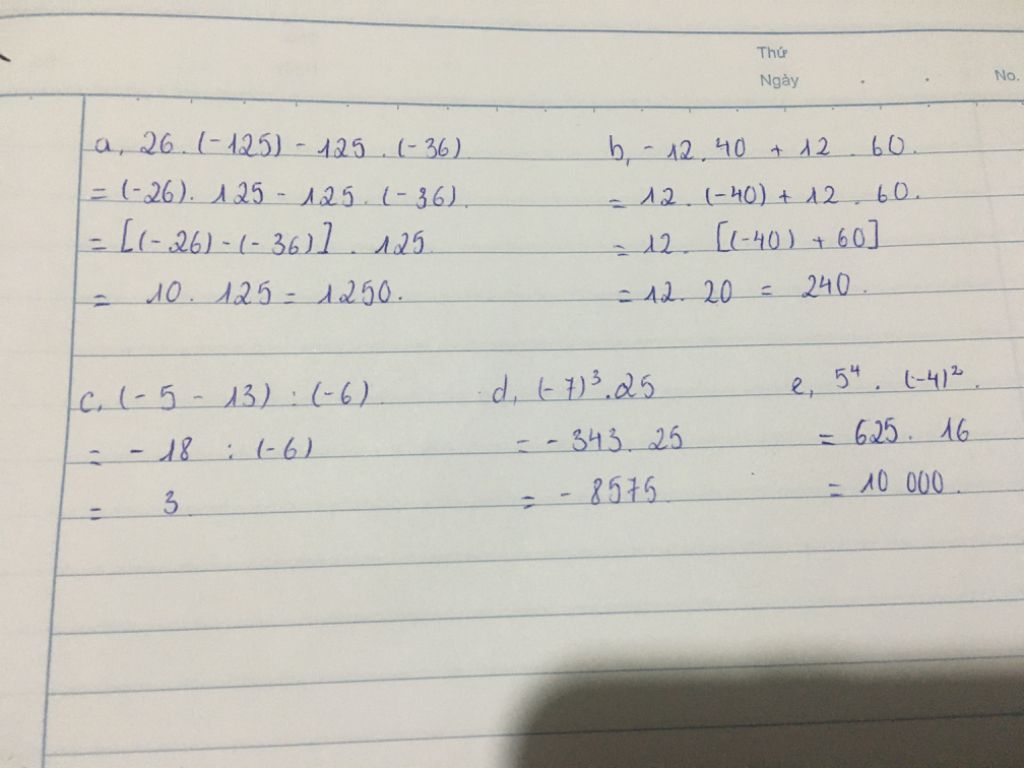 Thứ
Ngày . . No.
a, 26. (-125) - 125 . (-36)
= (-26). 125 - 125. (-36).
= [(-26) - (-36)] . 125
= 10. 125 = 1250.
b, - 12. 40 + 12 . 60.
= 12. (-40) + 12 . 60.
= 12. [(-40) + 60]
= 12. 20 = 240.
c, (- 5 - 13) : (-6)
= - 18 : (-6)
= 3
d, (-7)³.25
= - 343. 25
= - 8575
e, 5⁴ . (-4)².
= 625. 16
= 10 000.